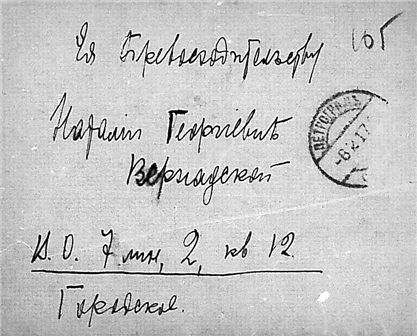 Ея Превосходительству
Наталіи Георгіевнѣ
Вернадской
В. О. 7 лин, 2, кв 12.
Городское.
ПЕТРОГРАДЪ
-8 2 17